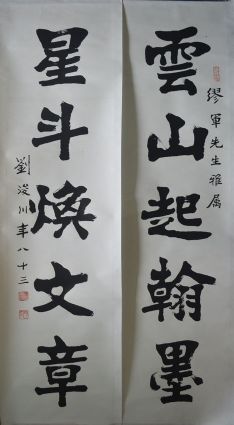 雲山起翰墨
繆軍先生雅属
星斗焕文章
劉浚川年八十三